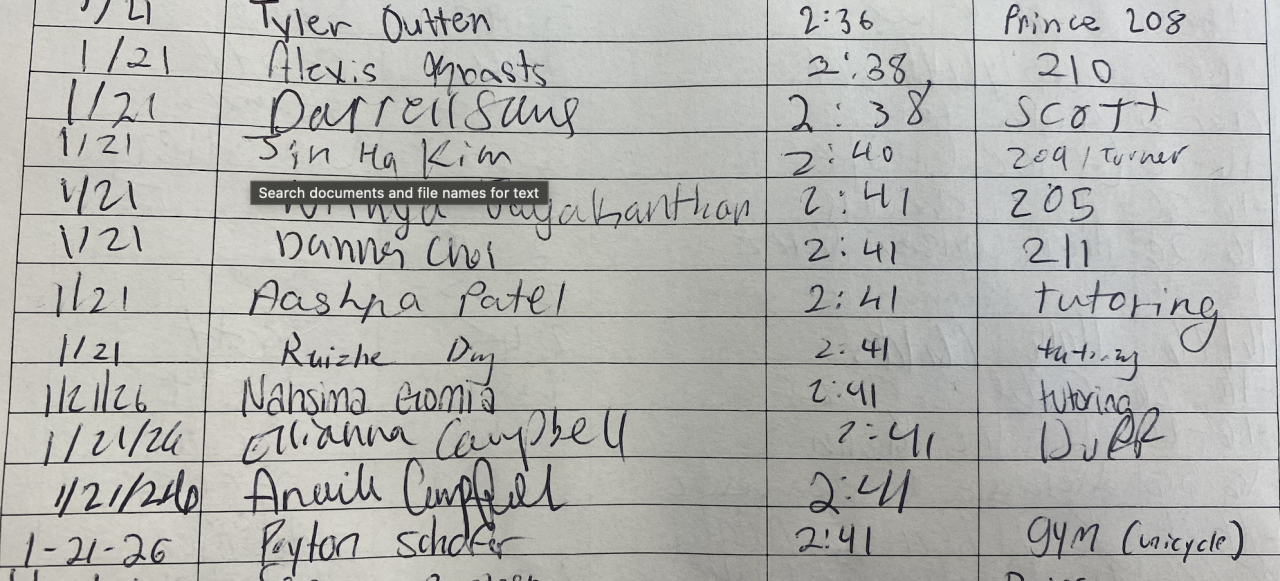 1/21 Tyler Outten 2:36 Prince 208
1/21 Alexis 2:38 210
1/21 Darrell Sans 2:38 Scott
1/21 Jin Ha Kim 2:40 209/Turner
Search documents and file names for text
1/21 Jayakanthan 2:41 205
1/21 Danny Choi 2:41 211
1/21 Aashna Patel 2:41 tutoring
1/21 Ruizhe 2:41 tutoring
1/21/26 Nahsima 2:41 tutoring
1/21/26 Ellianna Campbell 2:41
1/21/26 Campbell 2:41
1-21-26 Peyton Schafer 2:41 gym (unicycle)